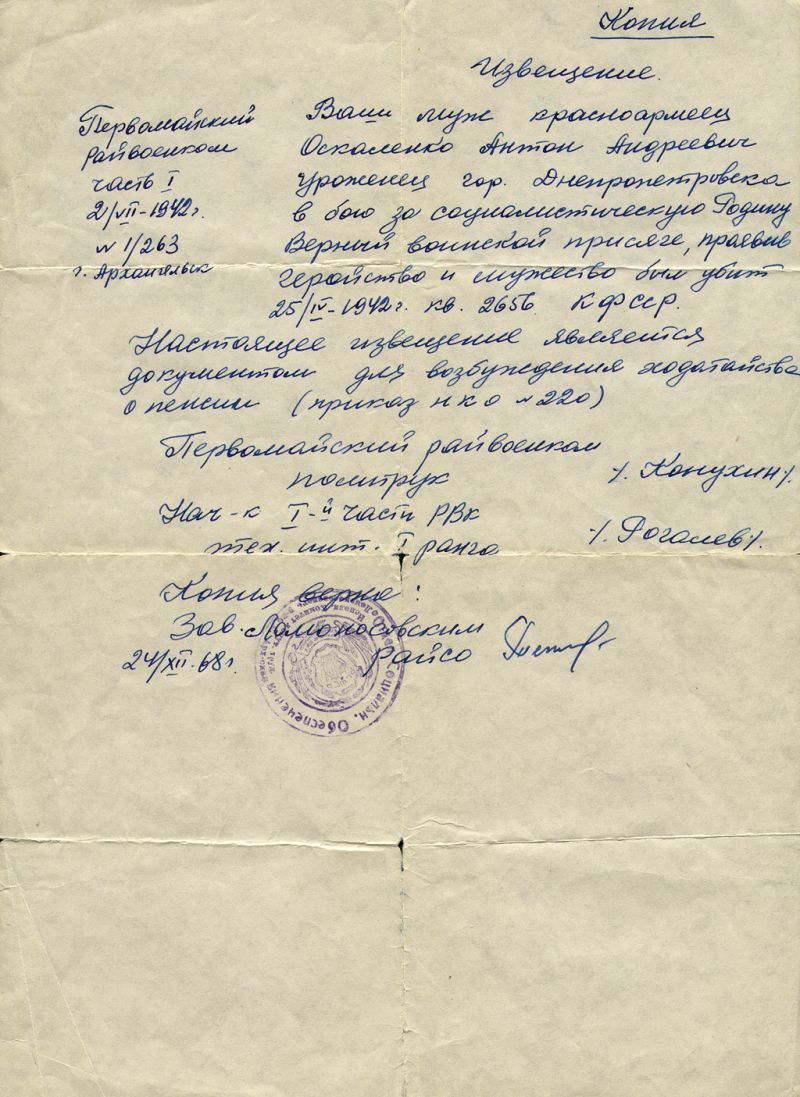 Копия
Извещение.
Первомайский
райвоенком
часть I
2/VII-1942г.
№ 1/263
г. Архангельск
Ваш муж красноармеец
Оскаленко Антон Андреевич
Уроженец гор. Днепропетровска
в бою за социалистическую Родину
Верный воинской присяге, проявив
геройство и мужество был убит
25/IV-1942г. кв. 2656 КФССР.
Настоящее извещение является
документом для возбуждения ходатайства
о пенсии (приказ НКО № 220)
Первомайский райвоенком
политрук /. Конухин /.
Нач-к I-й части РВК
тех. инт. I ранга /. Рогалев /.
Копия верна:
Зав. Ломоносовским
24/XII.68г. райсо
Социальн. Обеспечения